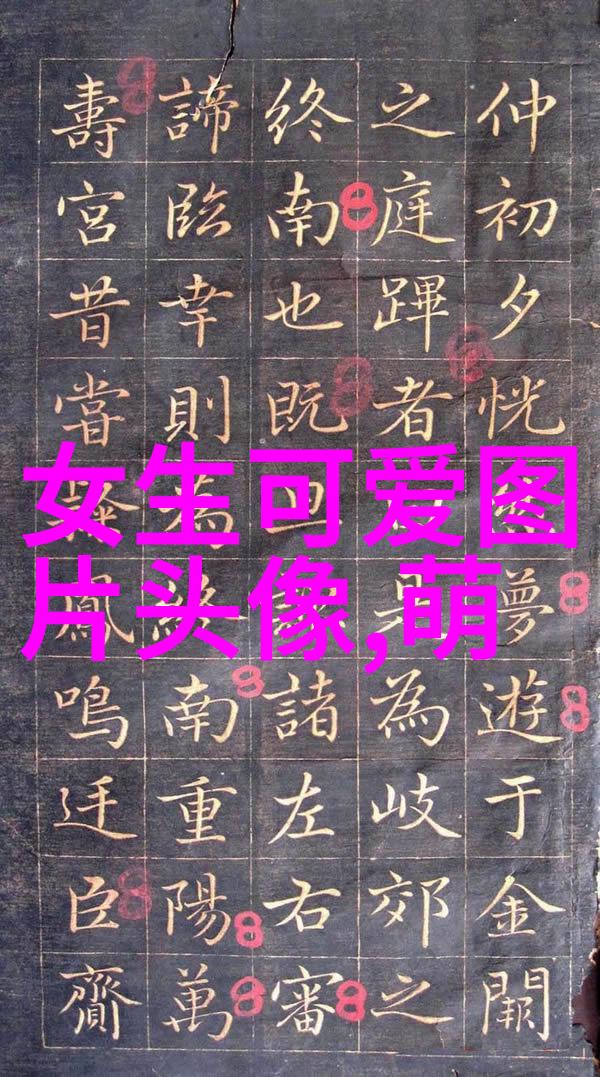 女生可爱图
片头像,萌
仲初夕恍夢遊于金闕
之庭蹕者為岐郊之
終南也既諸左右審
諦臨幸則為終南重陽萬
壽宮昔嘗鳳鳴廷臣齎